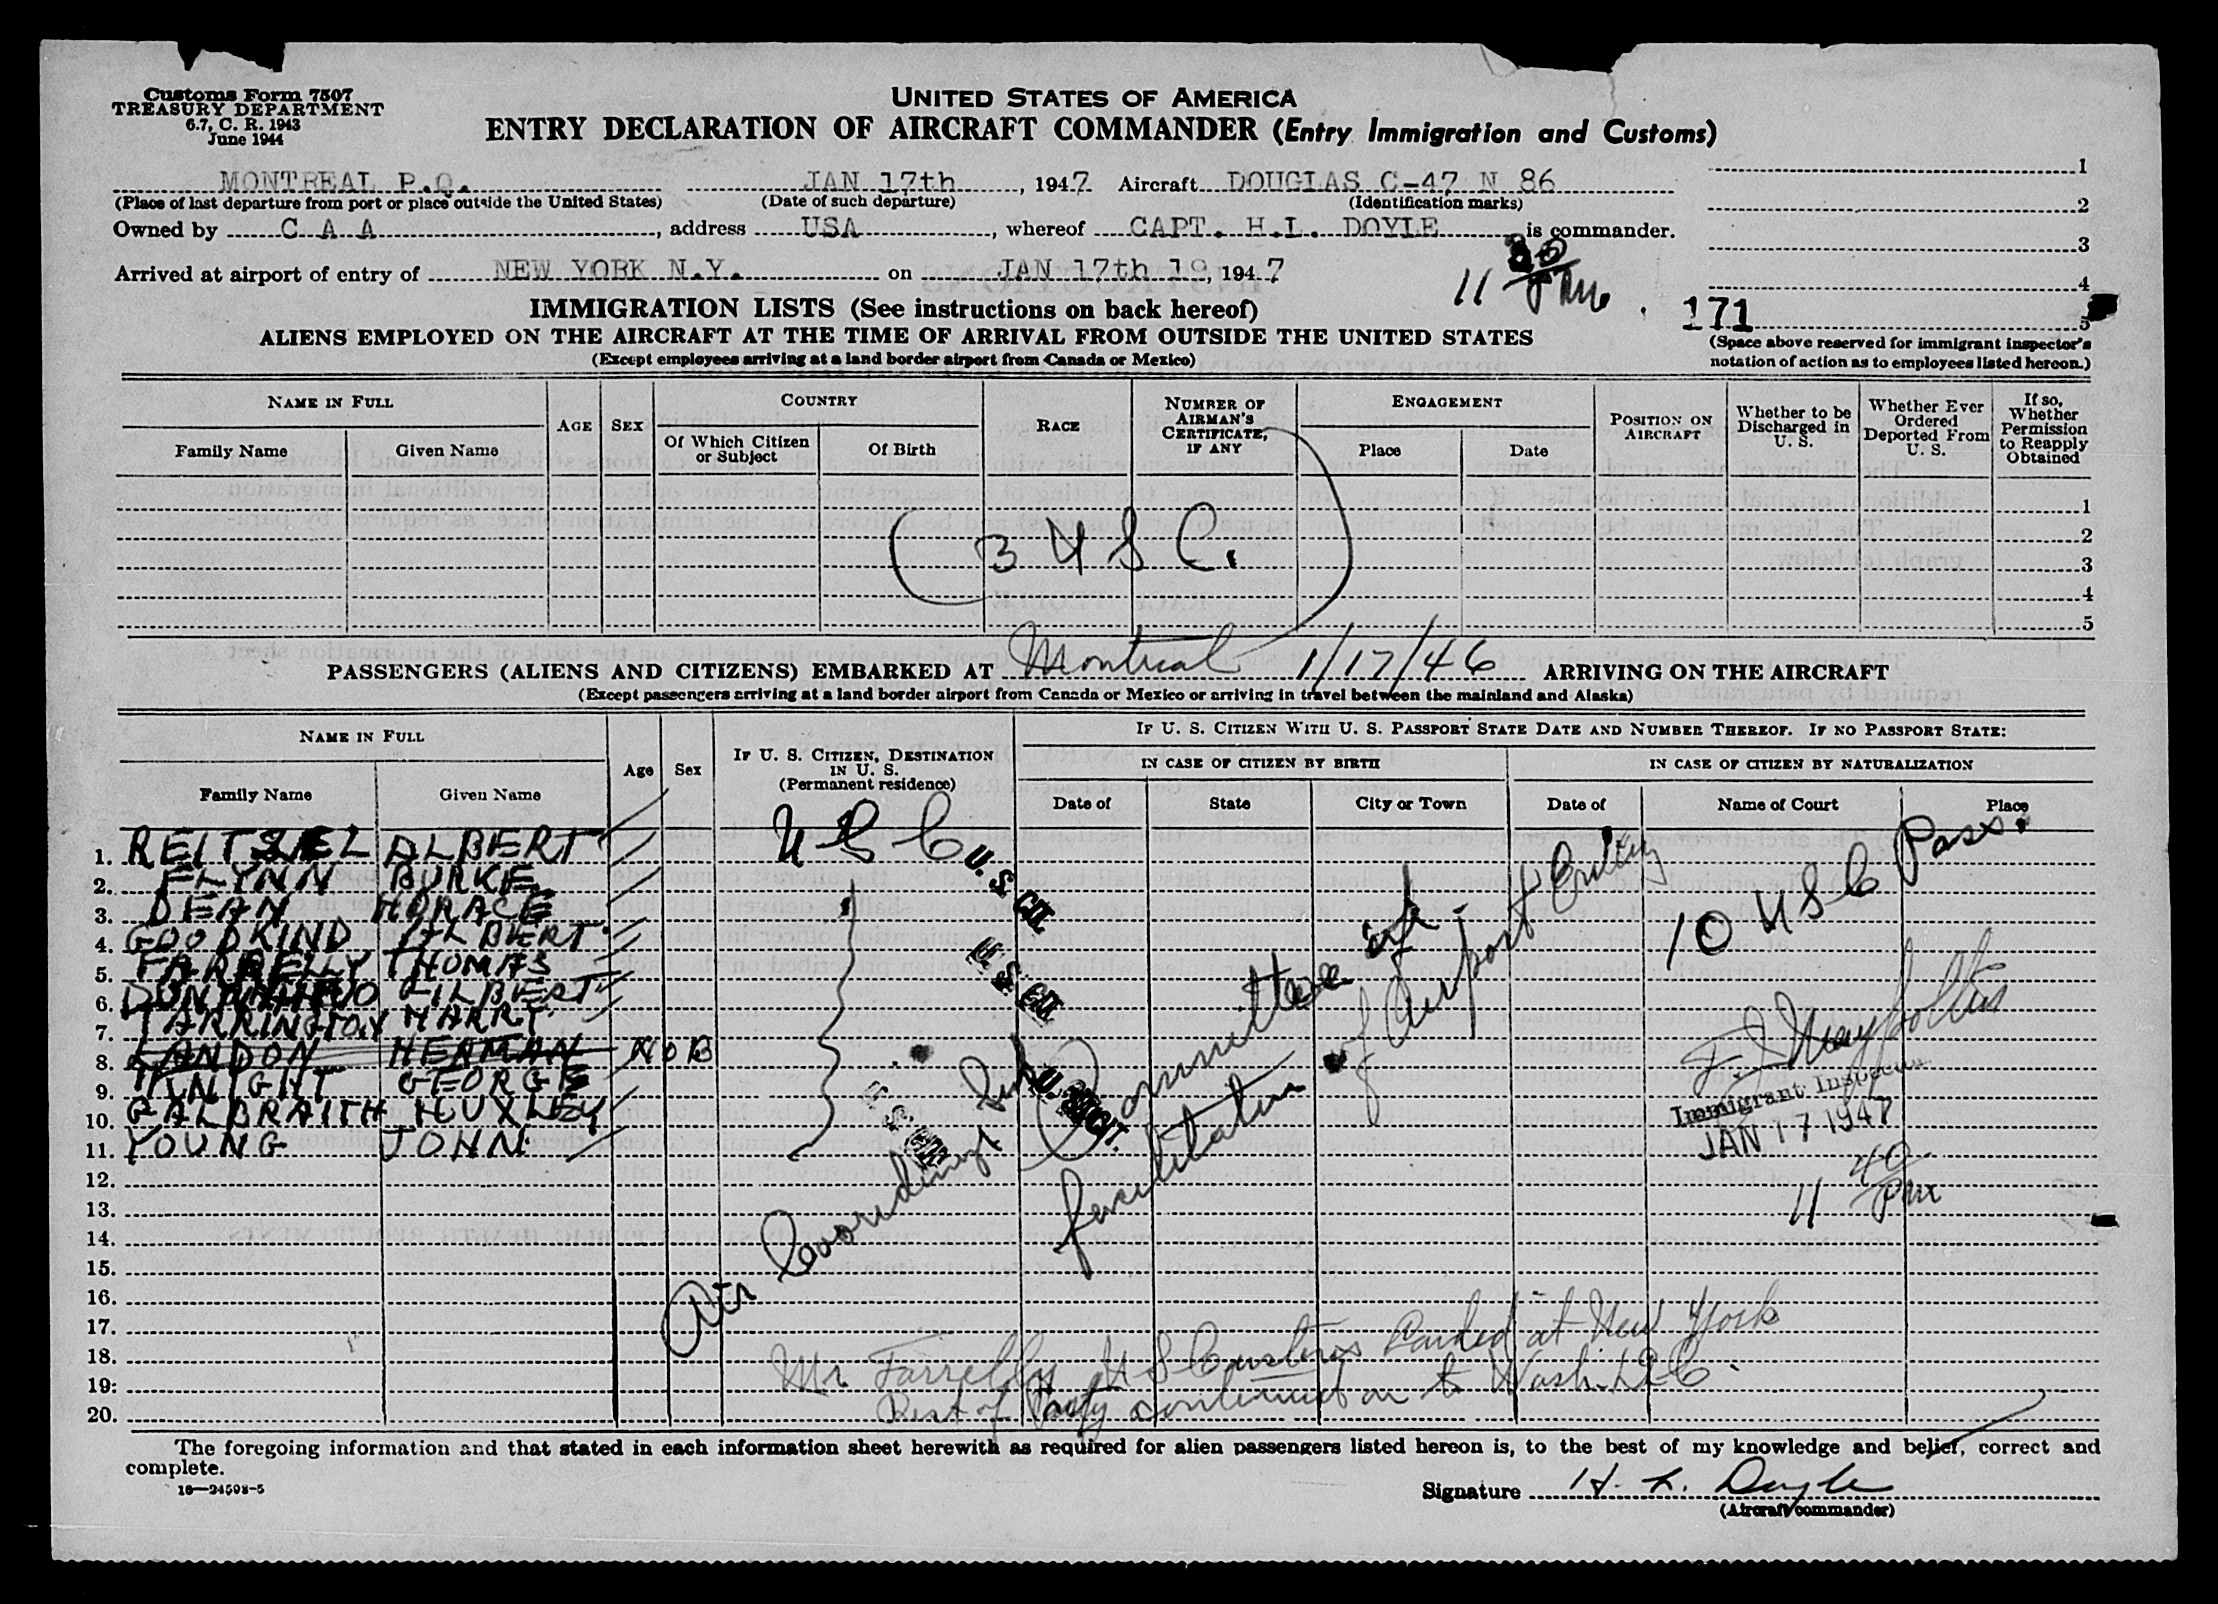 Customs Form 7507
TREASURY DEPARTMENT
6.7, C. R. 1943
June 1944
UNITED STATES OF AMERICA
ENTRY DECLARATION OF AIRCRAFT COMMANDER (Entry Immigration and Customs)
MONTREAL P.Q. JAN 17th, 1947 Aircraft DOUGLAS C-47 N 86 1
(Place of last departure from port or place outside the United States) (Date of such departure) (Identification marks) 2
Owned by C A A, address USA, whereof CAPT. H.L. DOYLE is commander. 3
Arrived at airport of entry of NEW YORK N.Y. on JAN 17th 19, 1947 11 30 PM 4
171 5
IMMIGRATION LISTS (See instructions on back hereof)
ALIENS EMPLOYED ON THE AIRCRAFT AT THE TIME OF ARRIVAL FROM OUTSIDE THE UNITED STATES
(Except employees arriving at a land border airport from Canada or Mexico)
(Space above reserved for immigrant inspector's
notation of action as to employees listed hereon.)
NAME IN FULL
Family Name Given Name
AGE SEX
COUNTRY
Of Which Citizen or Subject Of Birth
RACE
NUMBER OF AIRMAN'S CERTIFICATE, IF ANY
ENGAGEMENT
Place Date
POSITION ON AIRCRAFT
Whether to be Discharged in U. S.
Whether Ever Ordered Deported From U. S.
If so, Whether Permission to Reapply Obtained
1
2
(3 U S C.)
3
4
5
PASSENGERS (ALIENS AND CITIZENS) EMBARKED AT Montreal 1/17/46 ARRIVING ON THE AIRCRAFT
(Except passengers arriving at a land border airport from Canada or Mexico or arriving in travel between the mainland and Alaska)
NAME IN FULL
Family Name Given Name
Age Sex
IF U. S. CITIZEN, DESTINATION IN U. S.
(Permanent residence)
IF U. S. CITIZEN WITH U. S. PASSPORT STATE DATE AND NUMBER THEREOF. IF NO PASSPORT STATE:
IN CASE OF CITIZEN BY BIRTH
IN CASE OF CITIZEN BY NATURALIZATION
Date of State City or Town Date of Name of Court Place
1. REITZEL ALBERT U S C
2. FLYNN BURKE
3. DEAN HORACE
4. GOODKIND GILBERT
5. FARRELLY THOMAS
6. GILBERT
7. TARRINGTON HARRY
8. LANDON HERMAN NOB
9. KNIGHT GEORGE
10. GALBRAITH HUXLEY
11. YOUNG JOHN
12.
13.
14.
15.
16.
17.
18.
19.
20.
U. S. CIT.
U. S. CIT.
U. S. CIT.
U. S. CIT.
10 U S C Pass.
Air Coordinating Sub Committee
facilitation of Airport Entry
Immigrant Inspector
JAN 17 1947
11 40 PM
Mr Farrelly U S Customs Landed at New York
Rest of Party continued on to Wash. D C.
The foregoing information and that stated in each information sheet herewith as required for alien passengers listed hereon is, to the best of my knowledge and belief, correct and
complete.
16—24598-5
Signature H. L. Doyle
(Aircraft commander)